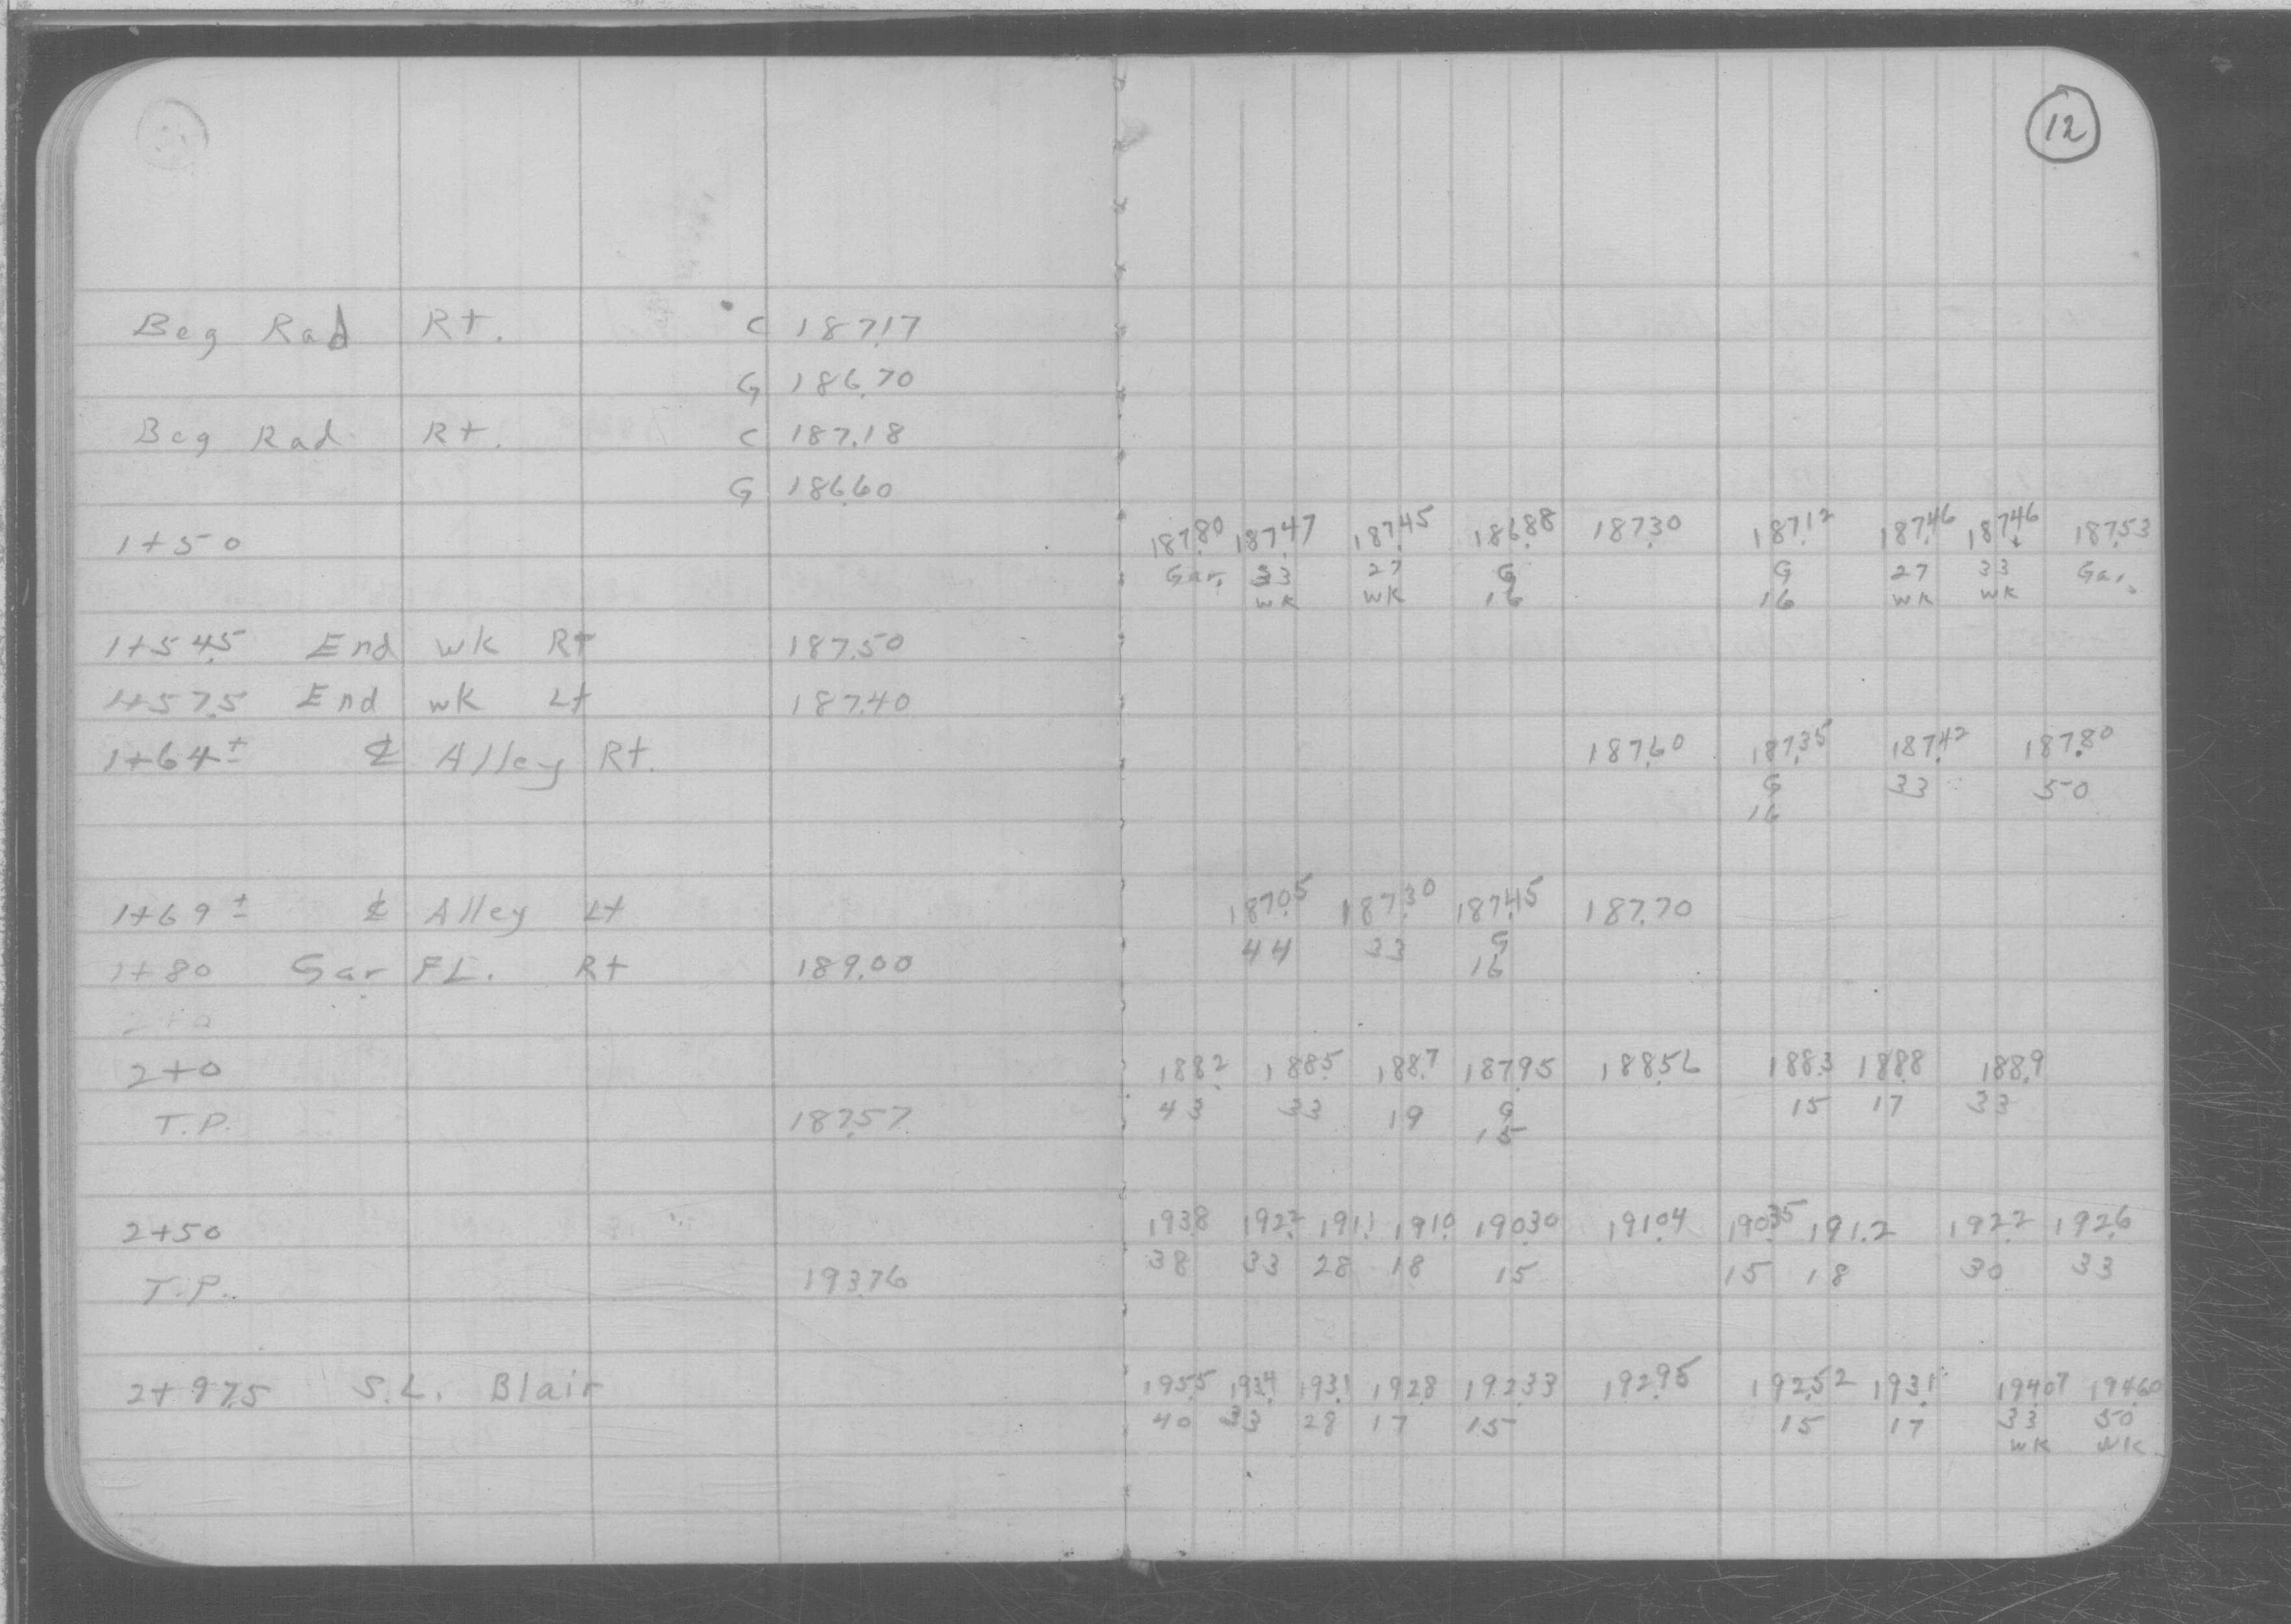 12
Beg Rad Rt. C 187.17
G 186.70
Beg Rad Rt. C 187.18
G 186.60
1+50 187.80 187.47 187.45 186.88 187.30 187.12 187.46 187.46 187.53
Gar. 33 27 G G 27 33 Gar.
wk wk 16 16 wk wk
1+54.5 End wk Rt 187.50
1+57.5 End wk Lt 187.40
1+64± ℄ Alley Rt. 187.60 187.35 187.42 187.80
G 33 50
16
1+69± ℄ Alley Lt 187.05 187.30 187.45 187.70
44 33 G
1+80 Gar FL. Rt 189.00 16
2+0
2+0 188.2 188.5 188.7 187.95 188.56 188.3 188.8 188.9
T.P. 187.57 43 33 19 G 15 17 33
15
2+50 193.8 192.2 191.1 191.0 190.30 191.04 190.35 191.2 192.2 192.6
T.P. 193.76 38 33 28 18 15 15 18 30 33
2+97.5 S.L. Blair 195.5 193.4 193.1 192.8 192.33 192.95 192.52 193.1 194.07 194.60
40 33 28 17 15 15 17 33 50
wk wk